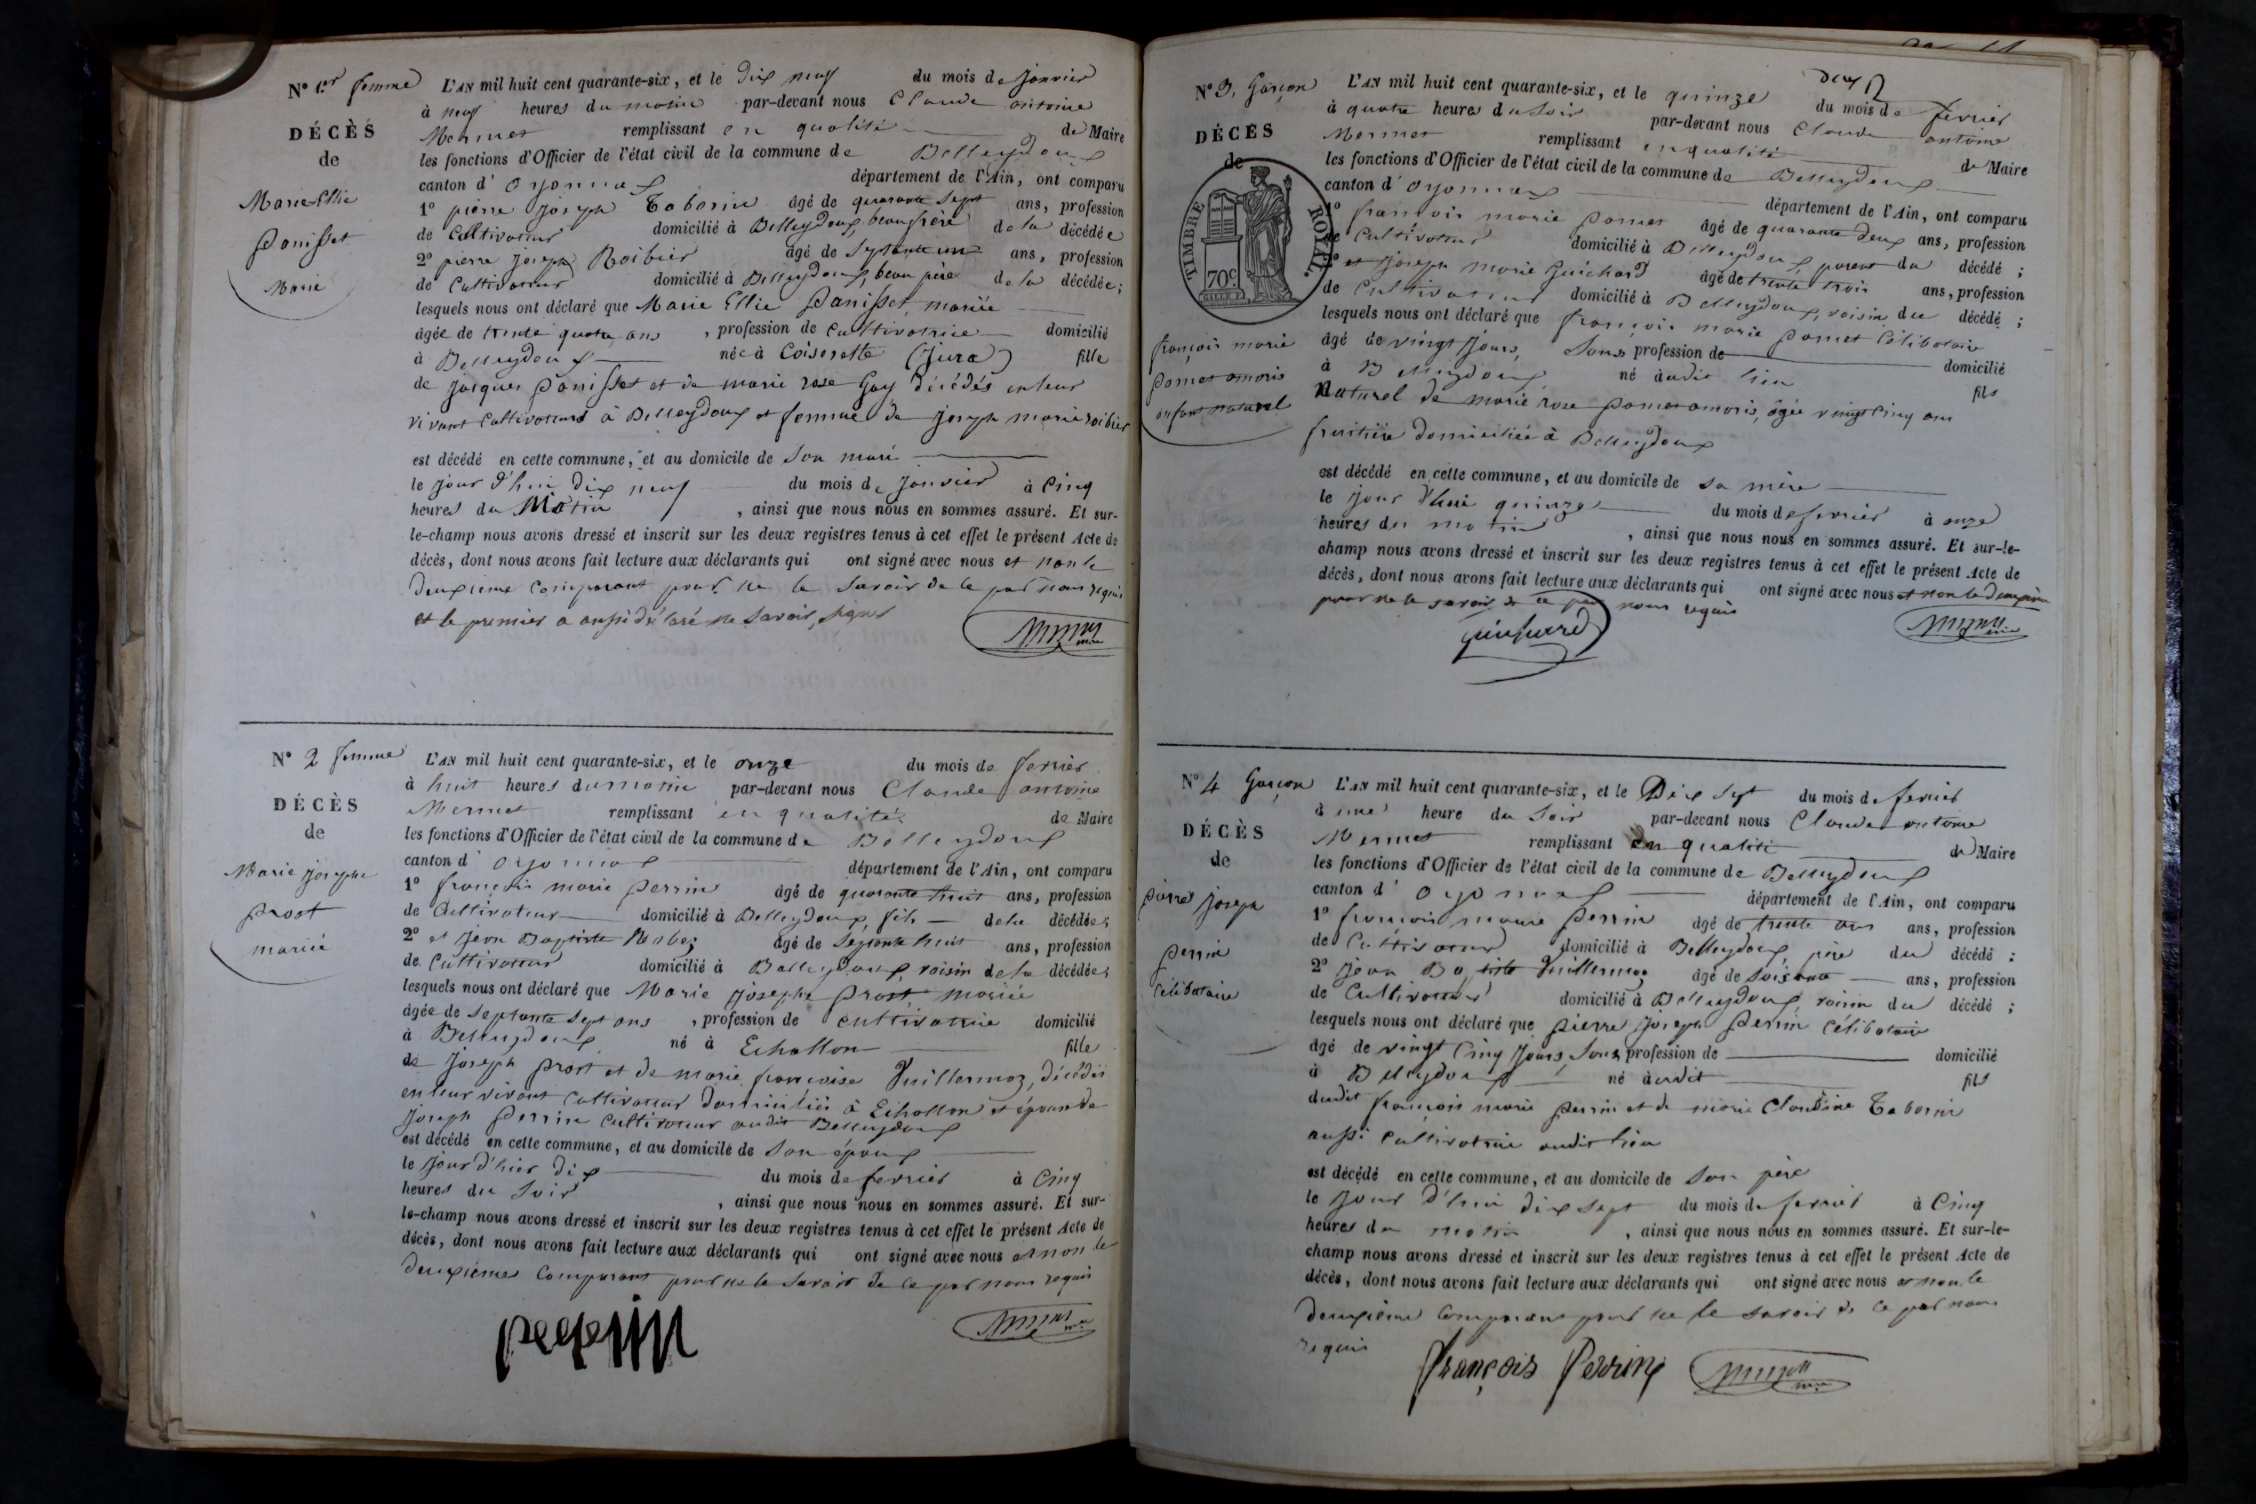 N° 1er femme
DÉCÈS
de
Marie Ellie
Panisset
Marie
L'AN mil huit cent quarante-six, et le dix neuf du mois de janvier
à neuf heures du matin par-devant nous Claude antoine
Mermet remplissant en qualité de Maire
les fonctions d'Officier de l'état civil de la commune de Belleydoux
canton d' oyonnax département de l'Ain, ont comparu
1° pierre joseph Taborin âgé de quarante sept ans, profession
de Cultivateur domicilié à Belleydoux, beau frère de la décédée
2° pierre joseph Roibier âgé de septante un ans, profession
de Cultivateur domicilié à Belleydoux, beau père de la décédée;
lesquels nous ont déclaré que Marie Ellie Panisset, mariée
âgée de trente quatre ans, profession de Cultivatrice domicilié
à Belleydoux née à Coiserette (Jura) fille
de jacques Panisset et de marie rose Gay décédés en leur
vivant Cultivateurs à Belleydoux et femme de joseph marie roibier
est décédé en cette commune, et au domicile de son mari
le jour d'hui dix neuf du mois de janvier à Cinq
heures du Matin, ainsi que nous nous en sommes assuré. Et sur-
le-champ nous avons dressé et inscrit sur les deux registres tenus à cet effet le présent Acte de
décès, dont nous avons fait lecture aux déclarants qui ont signé avec nous et non le
deuxième Comparant pour ne le savoir de ce par nous requis
et le premier a aussi déclaré ne savoir signer
N° 2 femme
DÉCÈS
de
Marie josephe
prost
mariée
L'AN mil huit cent quarante-six, et le onze du mois de fevrier
à huit heures du matin par-devant nous Claude antoine
Mermet remplissant en qualité de Maire
les fonctions d'Officier de l'état civil de la commune de Belleydoux
canton d' oyonnax département de l'Ain, ont comparu
1° françois marie perrin âgé de quarante huit ans, profession
de Cultivateur domicilié à Belleydoux, fils de la décédée;
2° et jean Baptiste âgé de septante huit ans, profession
de Cultivateur domicilié à Belleydoux, voisin de la décédée;
lesquels nous ont déclaré que Marie josephe prost mariée
âgée de septante sept ans, profession de cultivatrice domicilié
à Belleydoux né à Echallon fille
de joseph prost et de marie françoise Vuillermoz, décédés
en leur vivant cultivateurs domiciliés à Echallon et épouse de
joseph perrin cultivateur audit Belleydoux
est décédé en cette commune, et au domicile de son époux
le jour d'hier dix du mois de fevrier à Cinq
heures du soir, ainsi que nous nous en sommes assuré. Et sur-
le-champ nous avons dressé et inscrit sur les deux registres tenus à cet effet le présent Acte de
décès, dont nous avons fait lecture aux déclarants qui ont signé avec nous et non le
deuxième Comparant pour ne le savoir de ce par nous requis
N° 3, Garçon
DÉCÈS
de
TIMBRE ROYAL.
70c
françois marie
pomet amoris
enfant naturel
deux
L'AN mil huit cent quarante-six, et le quinze du mois de fevrier
à quatre heures du soir par-devant nous Claude antoine
Mermet remplissant en qualité de Maire
les fonctions d'Officier de l'état civil de la commune de Belleydoux
canton d' oyonnax département de l'Ain, ont comparu
1° françois marie pomet âgé de quarante deux ans, profession
de Cultivateur domicilié à Belleydoux, parent du décédé;
2° et joseph marie guichard âgé de trente trois ans, profession
de Cultivateur domicilié à Belleydoux, voisin du décédé;
lesquels nous ont déclaré que françois marie pomet Célibataire
âgé de vingt jours, sans profession de domicilié
à Belleydoux né audit lieu fils
Naturel de marie rose pomet amoris, âgée vingt cinq ans
fruitière domiciliée à Belleydoux
est décédé en cette commune, et au domicile de sa mère
le jour d'hui quinze du mois de fevrier à onze
heures du matin, ainsi que nous nous en sommes assuré. Et sur-le-
champ nous avons dressé et inscrit sur les deux registres tenus à cet effet le présent Acte de
décès, dont nous avons fait lecture aux déclarants qui ont signé avec nous et non le deuxième
pour ne le savoir de ce par nous requis
N° 4 Garçon
DÉCÈS
de
pierre joseph
perrin
célibataire
L'AN mil huit cent quarante-six, et le Dix sept du mois de fevrier
à une heure du soir par-devant nous Claude antoine
Mermet remplissant en qualité de Maire
les fonctions d'Officier de l'état civil de la commune de Belleydoux
canton d' oyonnax département de l'Ain, ont comparu
1° françois marie perrin âgé de trente ans ans, profession
de Cultivateur domicilié à Belleydoux, père du décédé:
2° jean Batiste Vuillermoz âgé de soixante ans, profession
de Cultivateur domicilié à Belleydoux, voisin du décédé;
lesquels nous ont déclaré que pierre joseph perrin célibataire
âgé de vingt cinq jours, sans profession de domicilié
à Belleydoux né audit fils
dudit françois marie perrin et de marie Claudine Taborin
aussi cultivatrice audit lieu
est décédé en cette commune, et au domicile de son père
le jour d'hui dix sept du mois de fevrier à Cinq
heures du matin, ainsi que nous nous en sommes assuré. Et sur-le-
champ nous avons dressé et inscrit sur les deux registres tenus à cet effet le présent Acte de
décès, dont nous avons fait lecture aux déclarants qui ont signé avec nous et non le
deuxième Comparant pour ne le savoir de ce par nous
requis
françois Perrin